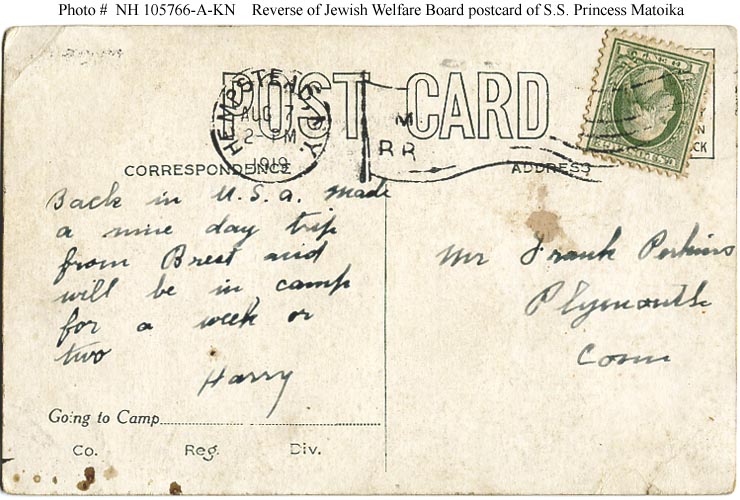 Photo # NH 105766-A-KN Reverse of Jewish Welfare Board postcard of S.S. Princess Matoika
POST CARD
HEMPSTEAD, N.Y.
AUG 7
2-PM
1919
M
RR
CORRESPONDENCE
ADDRESS
Back in U.S.A. Made
a nine day trip
from Brest and
will be in camp
for a week or
two
Harry
Mr Frank Perkins
Plymouth
Conn
Going to Camp
Co. Reg. Div.